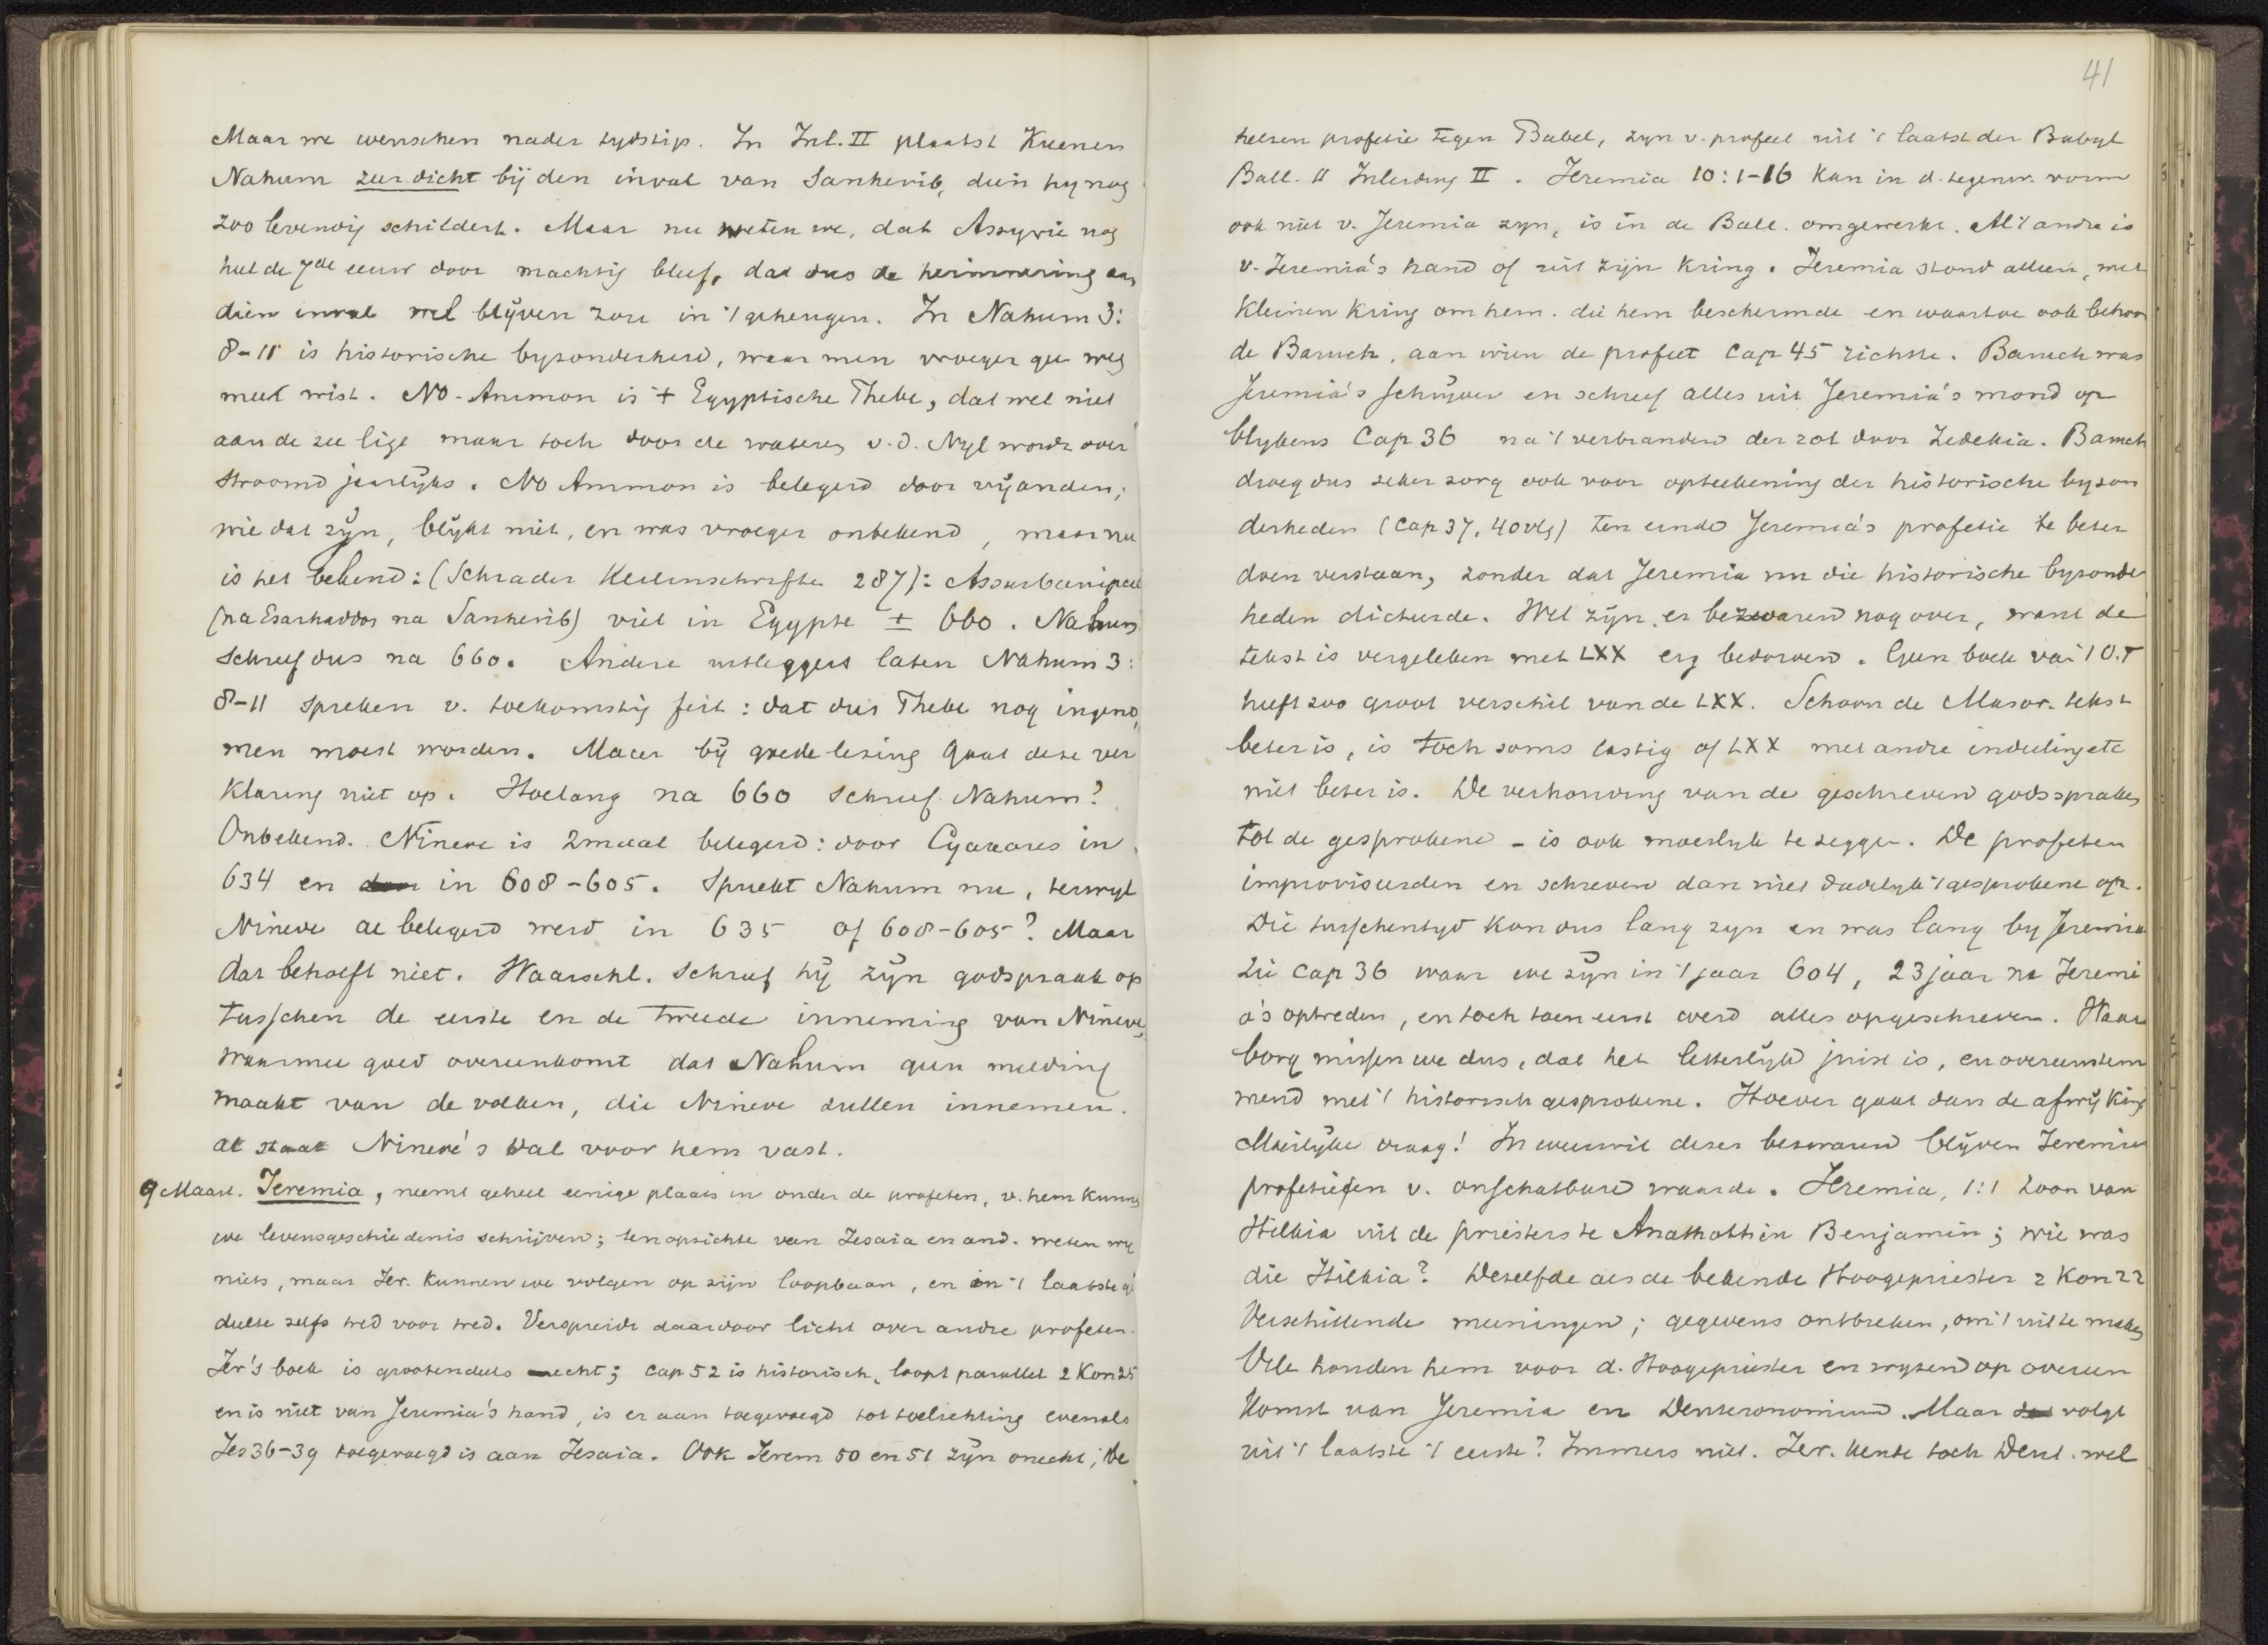 Maar we wenschen nader tydstip. In Inl. II plaatst Kuenen
Nahum zeer dicht bij den inval van Sanherib, dien hy nog
zoo levendig schildert. Maar nu weten we, dat Assyrie nog
heel de 7de eeuw door machtig bleef, dat dus de herinnering aan
dien inval wel blijven zou in 't geheugen. In Nahum 3:
8-11 is historische byzonderheid, waar men vroeger gee weg
meel wist. No-Ammon is 't Egyptische Thebe, dat wel niet
aan de zee lige maar toch door de wateren v.d. Nyl wordt over
stroomd jaarlijks. No Ammon is belegerd door vijanden;
wie dat zijn, blijkt niet, en was vroeger onbekend, maar nu
is het bekend: (Schrader Keilinschriften 287): Assurbanipal
(na Esarhaddon na Sanherib) viel in Egypte ± 660. Nahum
schreef dus na 660. Andere uitleggers laten Nahum 3:
8-11 spreken v. toekomstig feit: dat dus Thebe nog ingeno„
men moest worden. Maar bij goede lezing gaat deze ver
klaring niet op. Hoelang na 660 schreef Nahum?
Onbekend. Nineve is 2maal belegerd: door Cyaxares in
634 en in 608-605. Spreekt Nahum nu, terwyl
Nineve al belegerd werd in 635 of 608-605? Maar
dat behoeft niet. Waarschl. schreef hij zijn godspraak op
tusschen de eerste en de tweede inneming van Nineve,
waarmee goed overeenkomt dat Nahum geen melding
maakt van de volken, die Nineve zullen innemen.
al staat Nineve's val voor hem vast.
9 Maart. Jeremia, neemt geheel eenige plaats in onder de profeten, v. hem kunnen
we levensgeschiedenis schrijven; ten opzichte van Jesaia en and. weten wy
niets, maar Jer. kunnen we volgen op zijn loopbaan, en in 't laatste ge
deelte zelfs tred voor tred. Verspreidt daardoor licht over andre profeten.
Jer's boek is grootendeels echt; cap 52 is historisch, loopt parallel 2 Kon 25
en is niet van Jeremia's hand, is er aan toegevoegd tot toelichting evenals
Jes 36-39 toegevoegd is aan Jesaia. Ook Jerem 50 en 51 zijn onecht; de
41
heele profetie tegen Babel, zyn v. profeet uit 't laatst der Babyl
Ball. II Inleiding II. Jeremia 10:1-16 kan in d. tegenw. vorm
ook niet v. Jeremia zyn, is in de Ball. omgewerkt. Al 't andre is
v. Jeremia's hand of uit zijn kring. Jeremia stond alleen, met
kleinen kring om hem. die hem beschermde en waartoe ook behoor
de Baruch, aan wien de profeet cap 45 richtte. Baruch was
Jeremia's schrijver en schreef alles uit Jeremia's mond op
blykens Cap 36 na 't verbranden der rol door Zedekia. Baruch
droeg dus zeker zorg ook voor opteekening der historische byzon
derheden (cap 37, 40 vlg) ten einde Jeremia's profetie te beter
doen verstaan, zonder dat Jeremia nu die historische byzonder
heden dicteerde. Wel zijn er bezwaren nog over, want de
tekst is vergeleken met LXX erg bedorven. Geen boek van 't O.T
heeft zoo groot verschil van de LXX. Schoon de Masor. tekst
beter is, is toch soms lastig of LXX met andre indeeling etc
niet beter is. De verhouding van de geschreven godsspraken
tot de gesprokene - is ook moeilyk te zeggen. De profeten
improviseerden en schreven dan niet dadelyk 't gesprokene op.
Die tusschentyd kon dus lang zyn en was lang by Jeremia
Zie cap 36 waar we zijn in 't jaar 604, 23 jaar na Jeremi
a's optreden, en toch toen eerst werd alles opgeschreven. Waar
borg missen we dus, dat het letterlijk juist is, en overeenstem
mend met 't historisch gesprokene. Hoever gaat dan de afwijking
Moeilijke vraag! In weerwil dezer bezwaren blijven Jeremia
profetieen v. onschatbare waarde. Jeremia, 1:1 zoon van
Hilkia uit de priesters te Anathoth in Benjamin; wie was
die Hilkia? Dezelfde als de bekende Hoogepriester 2 Kon 22
Verschillende meeningen; gegevens ontbreken, om 't uit te maken
Vele houden hem voor d. Hoogepriester en wyzen op overeen
komst van Jeremia en Deuteronomium. Maar volgt
uit 't laatste 't eerste? Immers niet. Jer. kende toch Deut. wel